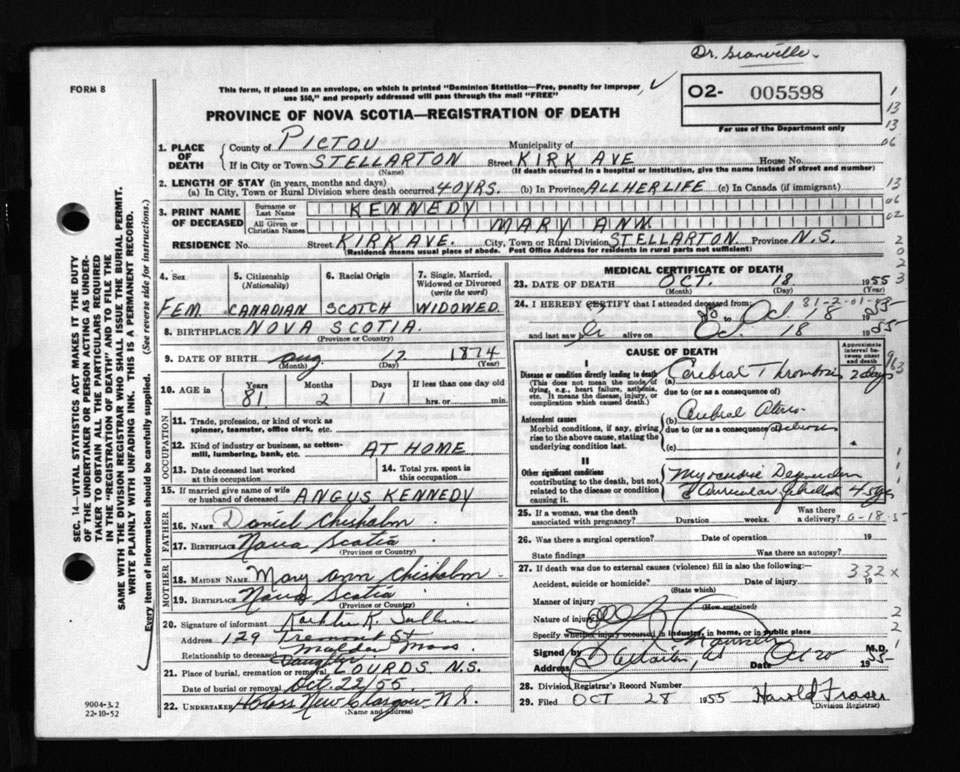 Dr. Granville
FORM 8
This form, if placed in an envelope, on which is printed "Dominion Statistics—Free, penalty for improper
use $50," and properly addressed will pass through the mail "FREE"
O2- 005598
For use of the Department only
PROVINCE OF NOVA SCOTIA—REGISTRATION OF DEATH
1. PLACE OF DEATH
County of PICTOU Municipality of
If in City or Town STELLARTON Street KIRK AVE House No.
(Name) (If death occurred in a hospital or institution, give the name instead of street and number)
2. LENGTH OF STAY (in years, months and days)
(a) In City, Town or Rural Division where death occurred 40 YRS. (b) In Province ALL HER LIFE (c) In Canada (if immigrant)
3. PRINT NAME OF DECEASED
Surname or Last Name KENNEDY
All Given or Christian Names MARY ANN
RESIDENCE No. Street KIRK AVE. City, Town or Rural Division STELLARTON. Province N.S.
(Residence means usual place of abode. Post Office Address for residents in rural parts not sufficient)
4. Sex FEM.
5. Citizenship (Nationality) CANADIAN
6. Racial Origin SCOTCH
7. Single, Married, Widowed or Divorced (write the word) WIDOWED
8. BIRTHPLACE NOVA SCOTIA.
(Province or Country)
9. DATE OF BIRTH Aug 17 1874
(Month) (Day) (Year)
10. AGE in Years Months Days If less than one day old
81 2 1 hrs. or min.
OCCUPATION
11. Trade, profession, or kind of work as
spinner, teamster, office clerk, etc.
12. Kind of industry or business, as cotton-
mill, lumbering, bank, etc. AT HOME
13. Date deceased last worked
at this occupation
14. Total yrs. spent in
this occupation
15. If married give name of wife
or husband of deceased ANGUS KENNEDY
FATHER
16. NAME Daniel Chisholm
17. BIRTHPLACE Nova Scotia
(Province or Country)
MOTHER
18. MAIDEN NAME Mary Ann Chisholm
19. BIRTHPLACE Nova Scotia
(Province or Country)
20. Signature of informant K.
Address 129 Tremont St
Malden Mass
Relationship to deceased Daughter
21. Place of burial, cremation or removal LOURDS N.S.
Date of burial or removal Oct. 22/55
22. UNDERTAKER New Glasgow N.S.
(Name and address)
MEDICAL CERTIFICATE OF DEATH
23. DATE OF DEATH OCT. 18 1955
(Month) (Day) (Year)
24. I HEREBY CERTIFY that I attended deceased from:
81-2-01-
to Oct. 18 1955
and last saw alive on Oct. 18 1955
CAUSE OF DEATH
Approximate interval between onset and death
I
Disease or condition directly leading to death
(This does not mean the mode of
dying, e.g., heart failure, asthenia,
etc. It means the disease, injury, or
complication which caused death.)
(a) Cerebral Thrombosis 2 days
due to (or as a consequence of)
Antecedent causes
Morbid conditions, if any, giving
rise to the above cause, stating the
underlying condition last.
(b) Cerebral
due to (or as a consequence of)
(c)
II
Other significant conditions
contributing to the death, but not
related to the disease or condition
causing it.
25. If a woman, was the death
associated with pregnancy? Duration weeks. Was there
a delivery?
26. Was there a surgical operation? Date of operation 19
State findings Was there an autopsy?
27. If death was due to external causes (violence) fill in also the following:—
332 x
Accident, suicide or homicide? Date of injury 19
(State which)
Manner of injury
(How sustained)
Nature of injury
Specify whether injury occurred in industry, in home, or in public place
Signed by M.D.
Address Date Oct 20 1955
28. Division Registrar's Record Number
29. Filed OCT 28 1955 Harold Fraser
(Division Registrar)
SEC. 14—VITAL STATISTICS ACT MAKES IT THE DUTY
OF THE UNDERTAKER OR PERSON ACTING AS UNDER-
TAKER TO OBTAIN ALL THE PARTICULARS REQUIRED
IN THE "REGISTRATION OF DEATH" AND TO FILE THE
SAME WITH THE DIVISION REGISTRAR WHO SHALL ISSUE THE BURIAL PERMIT.
WRITE PLAINLY WITH UNFADING INK. THIS IS A PERMANENT RECORD.
Every item of information should be carefully supplied. (See reverse side for instructions.)
9004-3.2
22-10-52